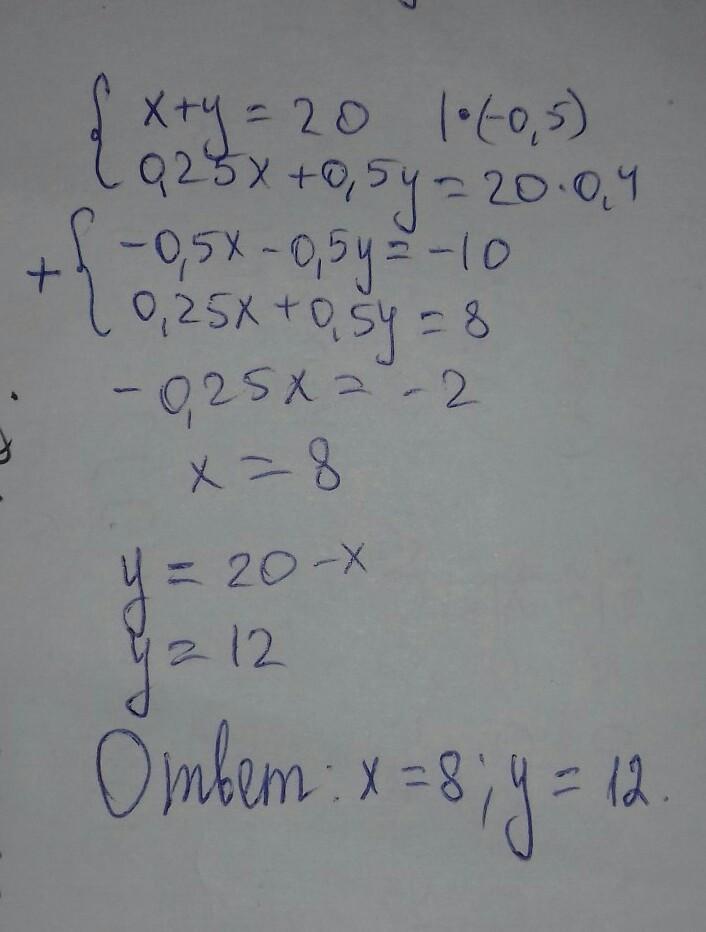 { x+y = 20 |·(-0,5)
0,25x + 0,5y = 20·0,4
+ { -0,5x - 0,5y = -10
0,25x + 0,5y = 8
-0,25x = -2
x = 8
y = 20 - x
y = 12
Ответ: x = 8; y = 12.